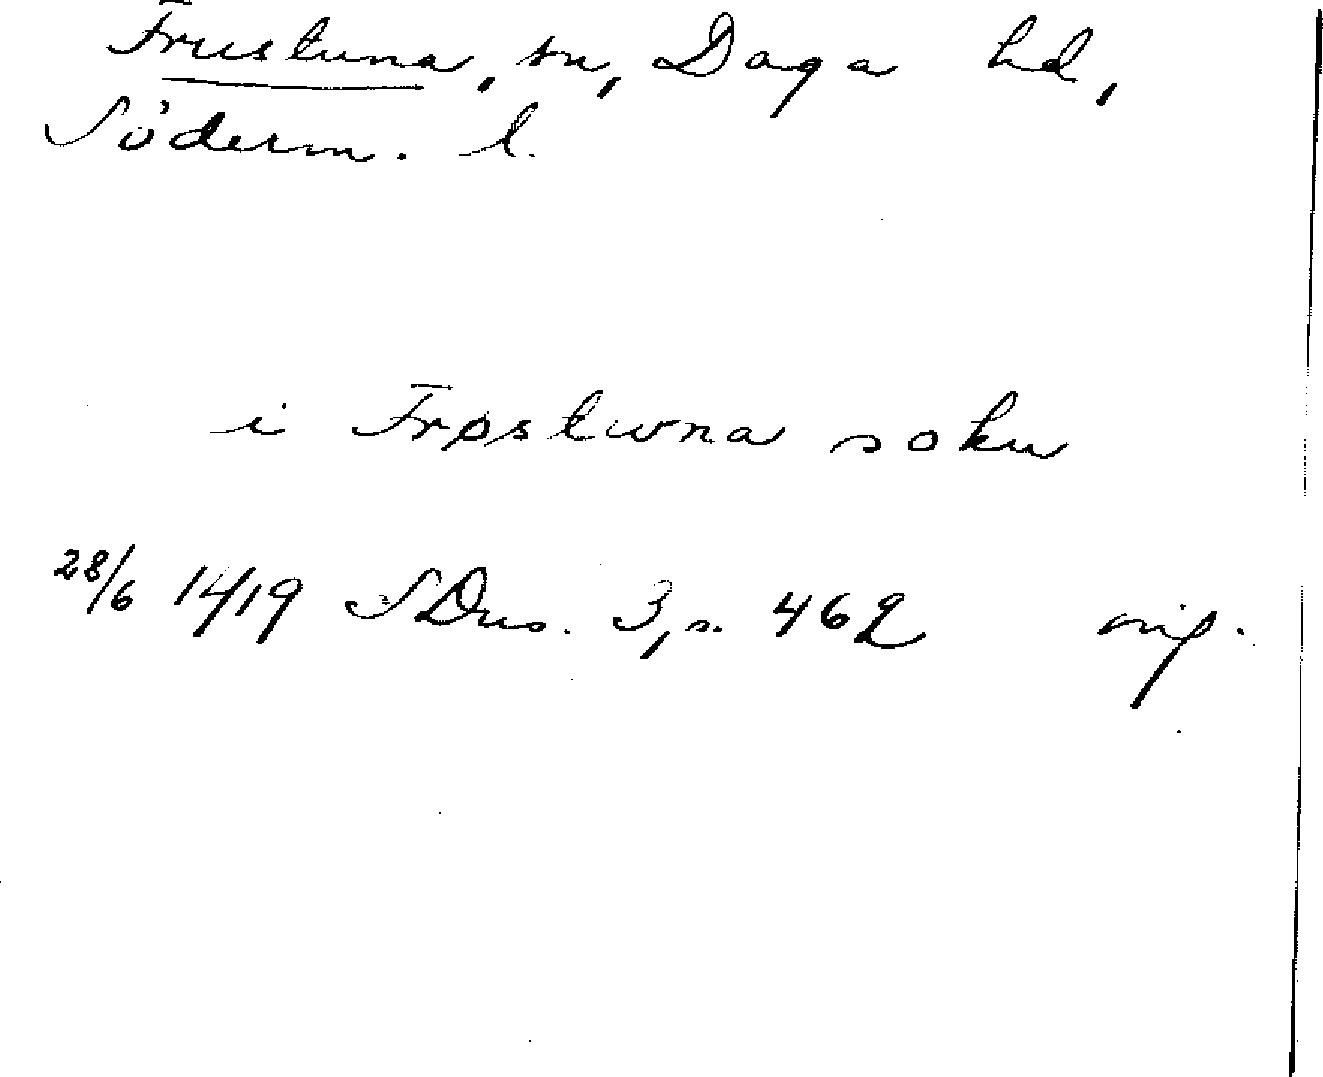 Frustuna, sn, Daga hd,
Söderm. l.
i Frøstwna sokn
28/6 1419 SDns. 3, s. 462 orig.